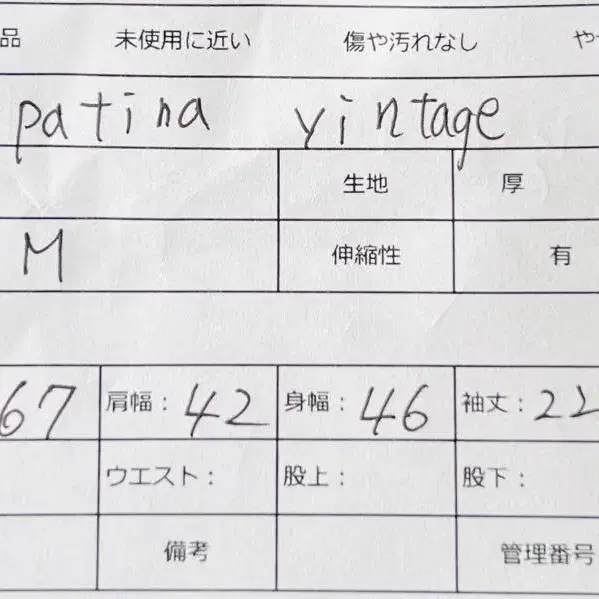 品 未使用に近い 傷や汚れなし や
patina vintage
生地 厚
M 伸縮性 有
67 肩幅: 42 身幅: 46 袖丈: 22
ウエスト: 股上: 股下:
備考 管理番号